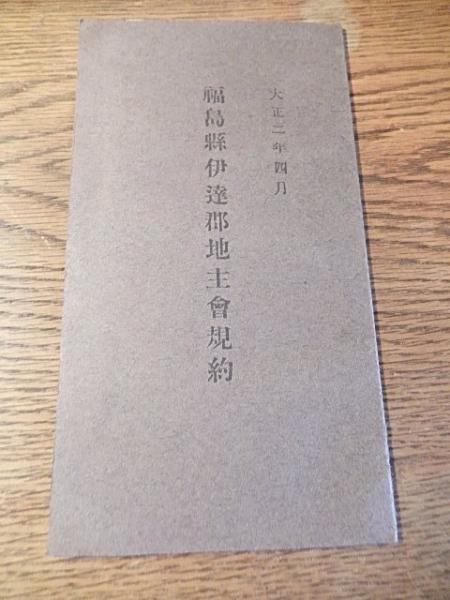 大正二年四月
福島縣伊達郡地主會規約